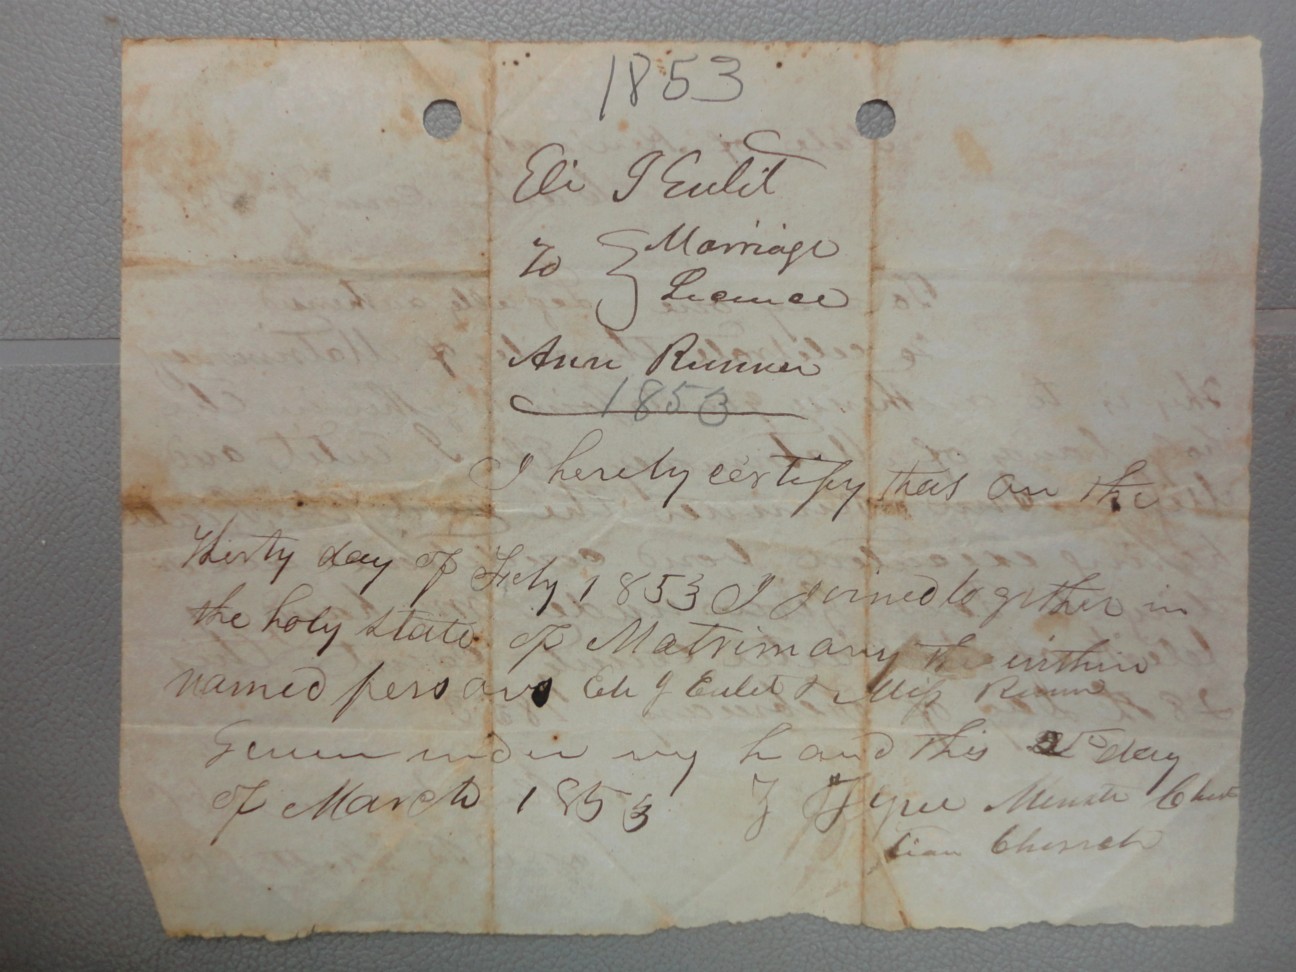 1853
Eli J Eulit
To Marriage
Licence
Ann Runner
1853
I hereby certify that on the
thirty day of Feby 1853 I joined together in
the holy state of Matrimany the within
named persons Eli J Eulit & Miss Runner
Given under my hand this day
of March 1853 Tyree Christ
tian Church